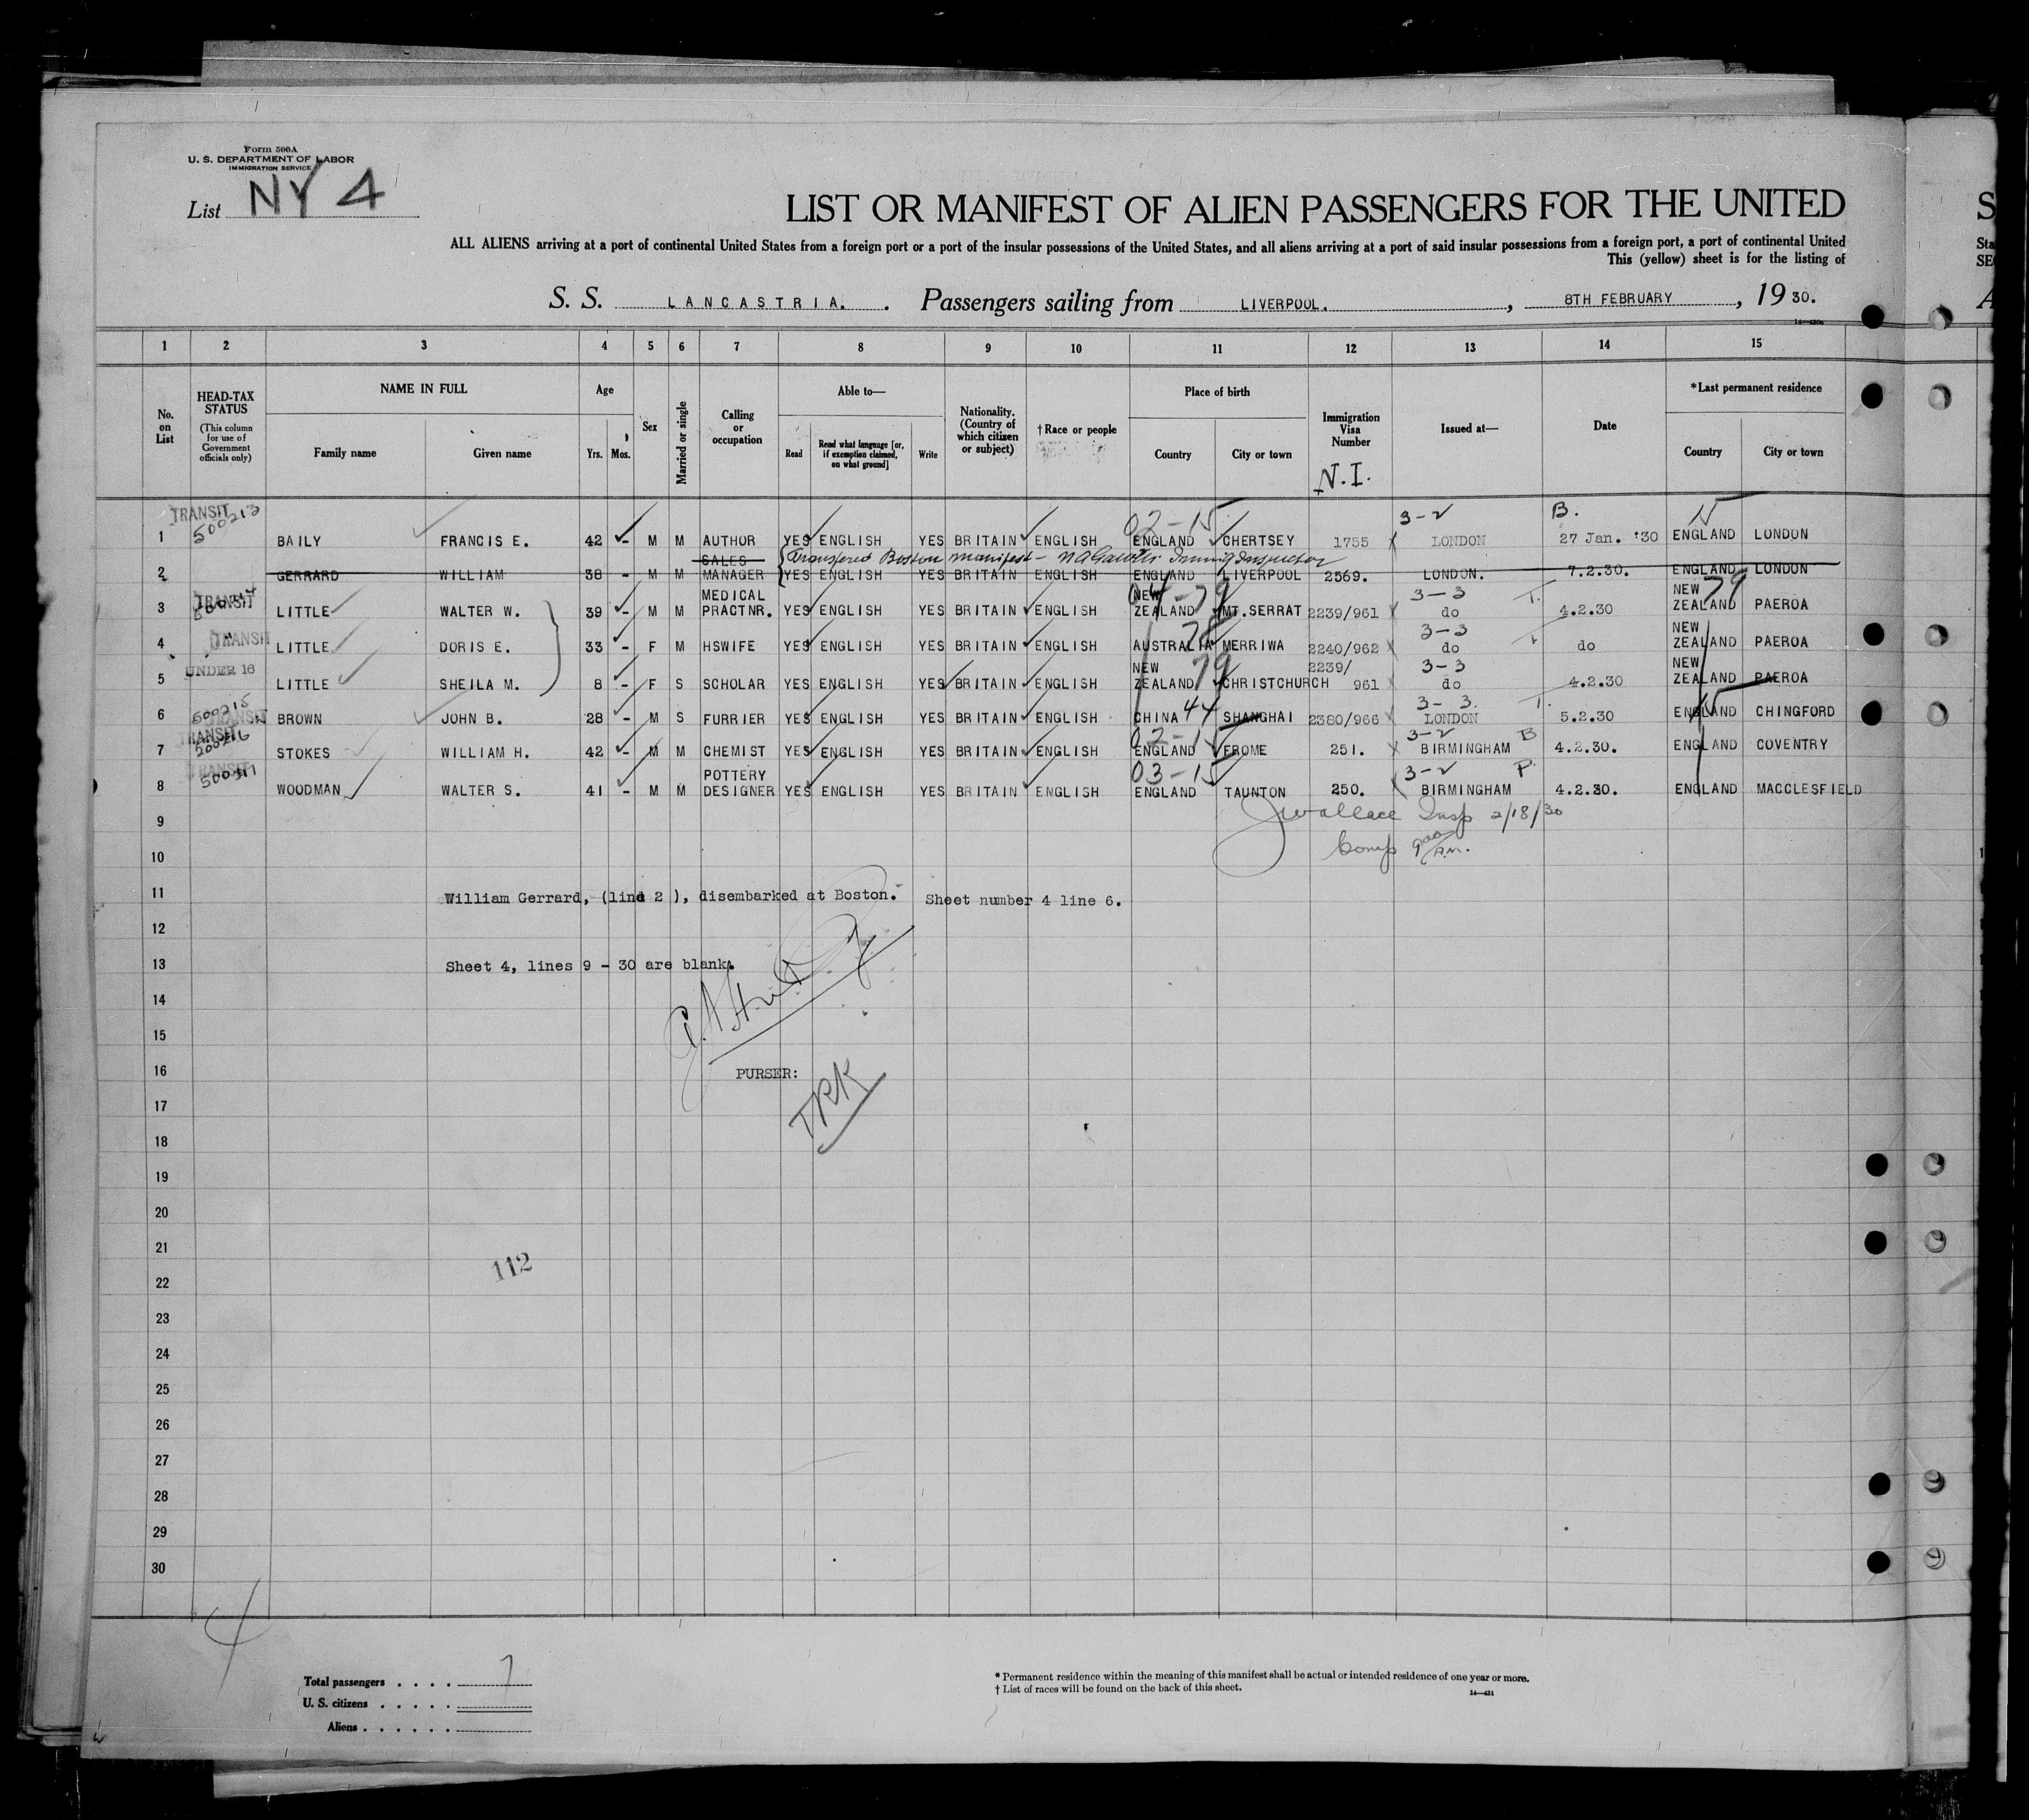 Form 500A
U. S. DEPARTMENT OF LABOR
IMMIGRATION SERVICE
List NY 4
LIST OR MANIFEST OF ALIEN PASSENGERS FOR THE UNITED
ALL ALIENS arriving at a port of continental United States from a foreign port or a port of the insular possessions of the United States, and all aliens arriving at a port of said insular possessions from a foreign port, a port of continental United
This (yellow) sheet is for the listing of
S. S. LANCASTRIA. Passengers sailing from LIVERPOOL. , 8TH FEBRUARY , 19 30.
1 2 3 4 5 6 7 8 9 10 11 12 13 14 15
No. on List
HEAD-TAX STATUS (This column for use of Government officials only)
NAME IN FULL
Family name Given name
Age
Yrs. Mos.
Sex
Married or single
Calling or occupation
Able to—
Read Read what language [or, if exemption claimed, on what ground] Write
Nationality. (Country of which citizen or subject)
†Race or people
Place of birth
Country City or town
Immigration Visa Number
N.I.
Issued at—
Date
*Last permanent residence
Country City or town
TRANSIT 500213 02-15 3-2 B. 15
1 BAILY FRANCIS E. 42 - M M AUTHOR YES ENGLISH YES BRITAIN ENGLISH ENGLAND CHERTSEY 1755 LONDON 27 Jan. '30 ENGLAND LONDON
Boston manifest - Immig Inspector
2 GERRARD WILLIAM 38 - M M SALES MANAGER YES ENGLISH YES BRITAIN ENGLISH ENGLAND LIVERPOOL 2569. LONDON. 7.2.30. ENGLAND LONDON
TRANSIT 04-79 3-3 T. 79
3 LITTLE WALTER W. 39 - M M MEDICAL PRACTNR. YES ENGLISH YES BRITAIN ENGLISH NEW ZEALAND MT.SERRAT 2239/961 do 4.2.30 NEW ZEALAND PAEROA
TRANSIT 78 3-3
4 LITTLE DORIS E. 33 - F M HSWIFE YES ENGLISH YES BRITAIN ENGLISH AUSTRALIA MERRIWA 2240/962 do do NEW ZEALAND PAEROA
UNDER 16 79 3-3
5 LITTLE SHEILA M. 8 - F S SCHOLAR YES ENGLISH YES BRITAIN ENGLISH NEW ZEALAND CHRISTCHURCH 2239/ 961 do 4.2.30 NEW ZEALAND PAEROA
500215 TRANSIT 44 3-3. T. 15
6 BROWN JOHN B. 28 - M S FURRIER YES ENGLISH YES BRITAIN ENGLISH CHINA SHANGHAI 2380/966 LONDON 5.2.30 ENGLAND CHINGFORD
TRANSIT 500216 02-15 3-2 B
7 STOKES WILLIAM H. 42 - M M CHEMIST YES ENGLISH YES BRITAIN ENGLISH ENGLAND FROME 251. BIRMINGHAM 4.2.30. ENGLAND COVENTRY
TRANSIT 03-15 3-2 P.
8 WOODMAN WALTER S. 41 - M M POTTERY DESIGNER YES ENGLISH YES BRITAIN ENGLISH ENGLAND TAUNTON 250. BIRMINGHAM 4.2.30. ENGLAND MACCLESFIELD
9 JWallace Insp 2/18/30
10 Comp 9 00/AM.
11 William Gerrard, (line 2 ), disembarked at Boston. Sheet number 4 line 6.
12
13 Sheet 4, lines 9 - 30 are blank.
14
15
16 PURSER:
17
18
19
20
21
112
22
23
24
25
26
27
28
29
30
Total passengers . . . . 7
U. S. citizens . . . . .
Aliens . . . . . .
* Permanent residence within the meaning of this manifest shall be actual or intended residence of one year or more.
† List of races will be found on the back of this sheet.
14—431